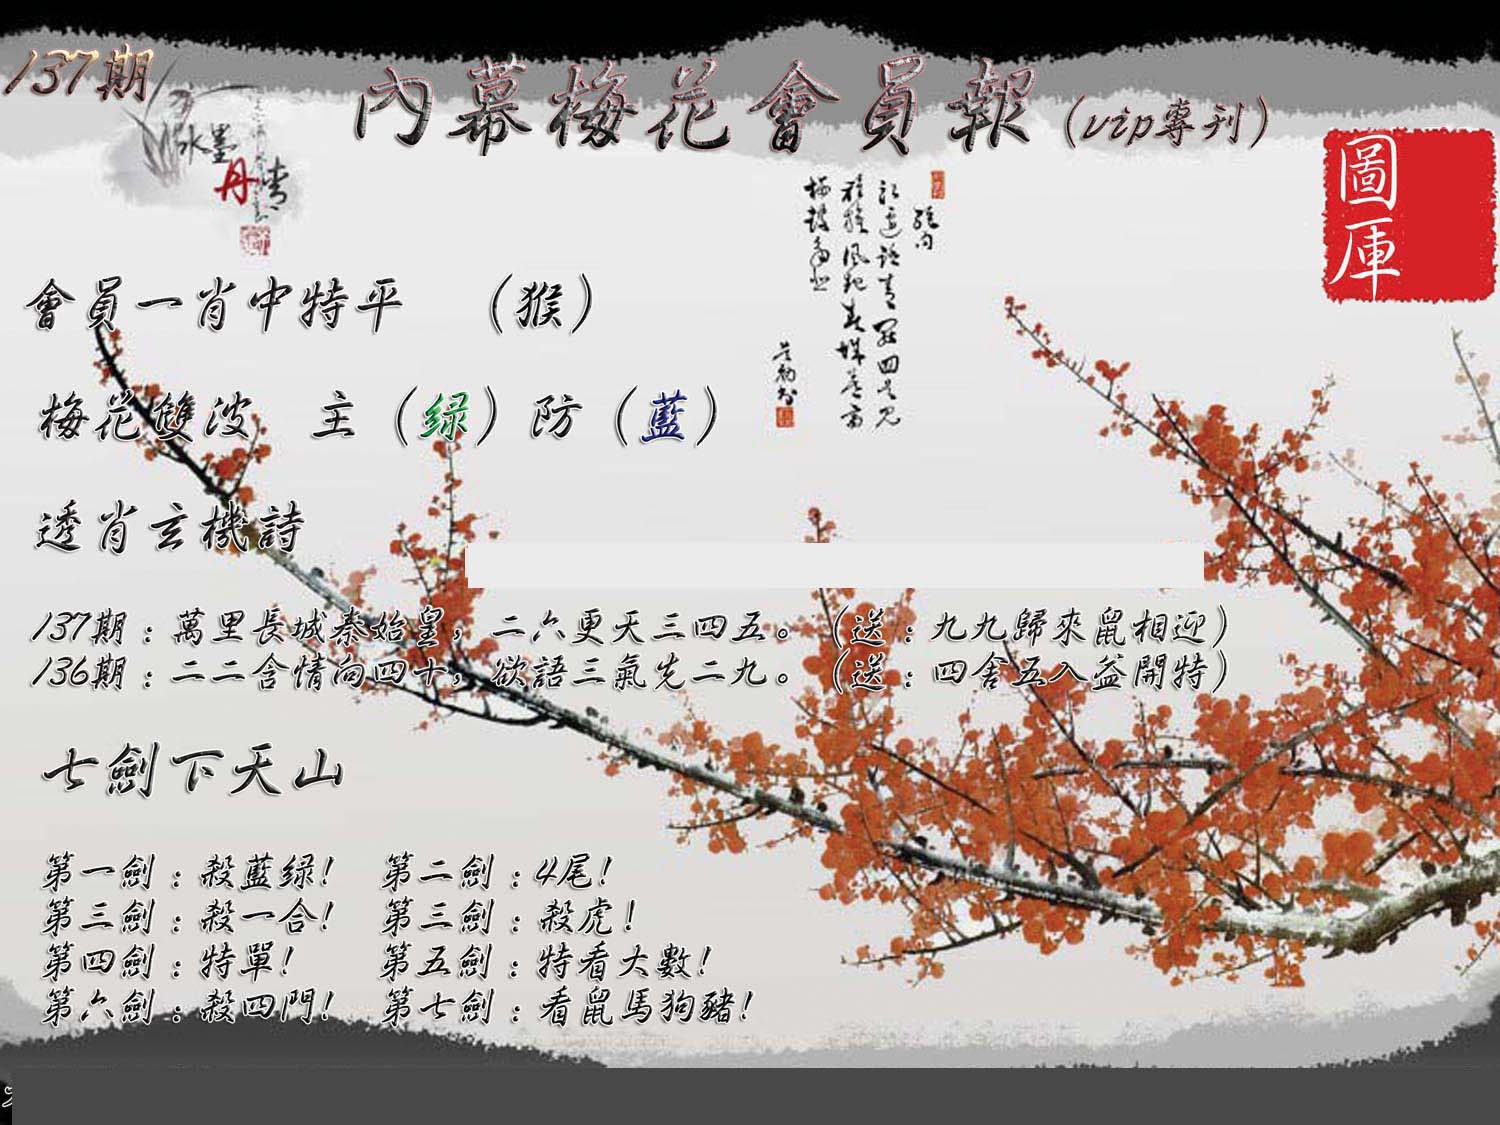 137期
內幕梅花會員報(vip專刊)
水墨
丹青
圖庫
會員一肖中特平 (猴)
梅花雙波 主(绿)防(藍)
透肖玄機詩
137期:萬里長城秦始皇,二六更天三四五。(送:九九歸來鼠相迎)
136期:二二含情向四十,欲語三氣先二九。(送:四舍五入益開特)
七劍下天山
第一劍:殺藍绿! 第二劍:4尾!
第三劍:殺一合! 第三劍:殺虎!
第四劍:特單! 第五劍:特看大數!
第六劍:殺四門! 第七劍:看鼠馬狗豬!